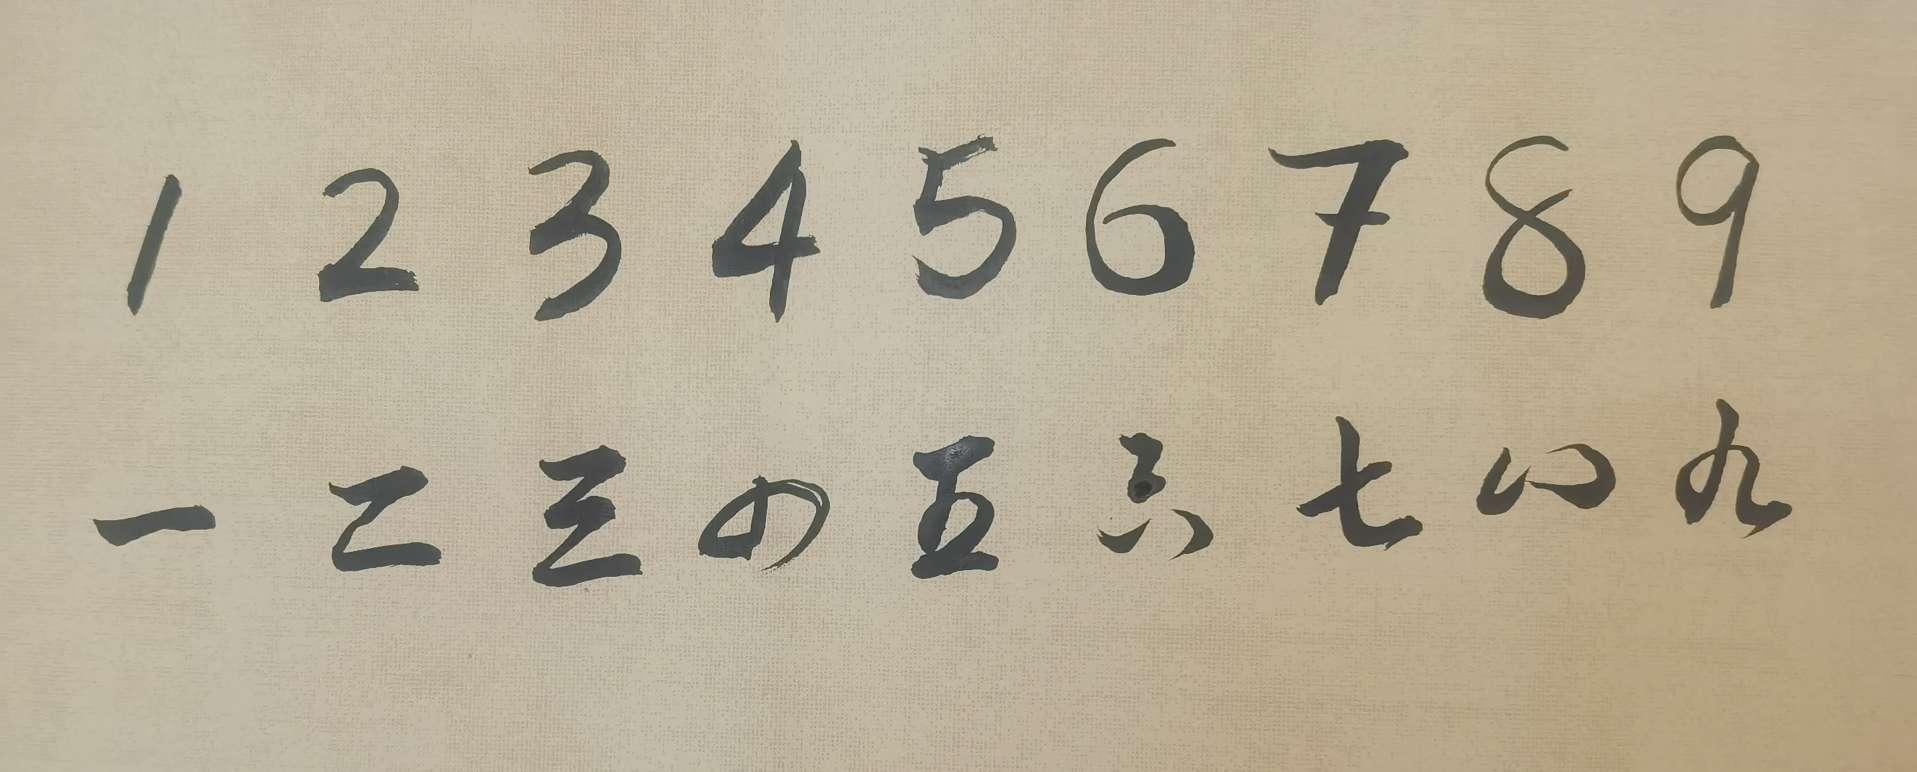 1 2 3 4 5 6 7 8 9
一 二 三 四 五 六 七 八 九